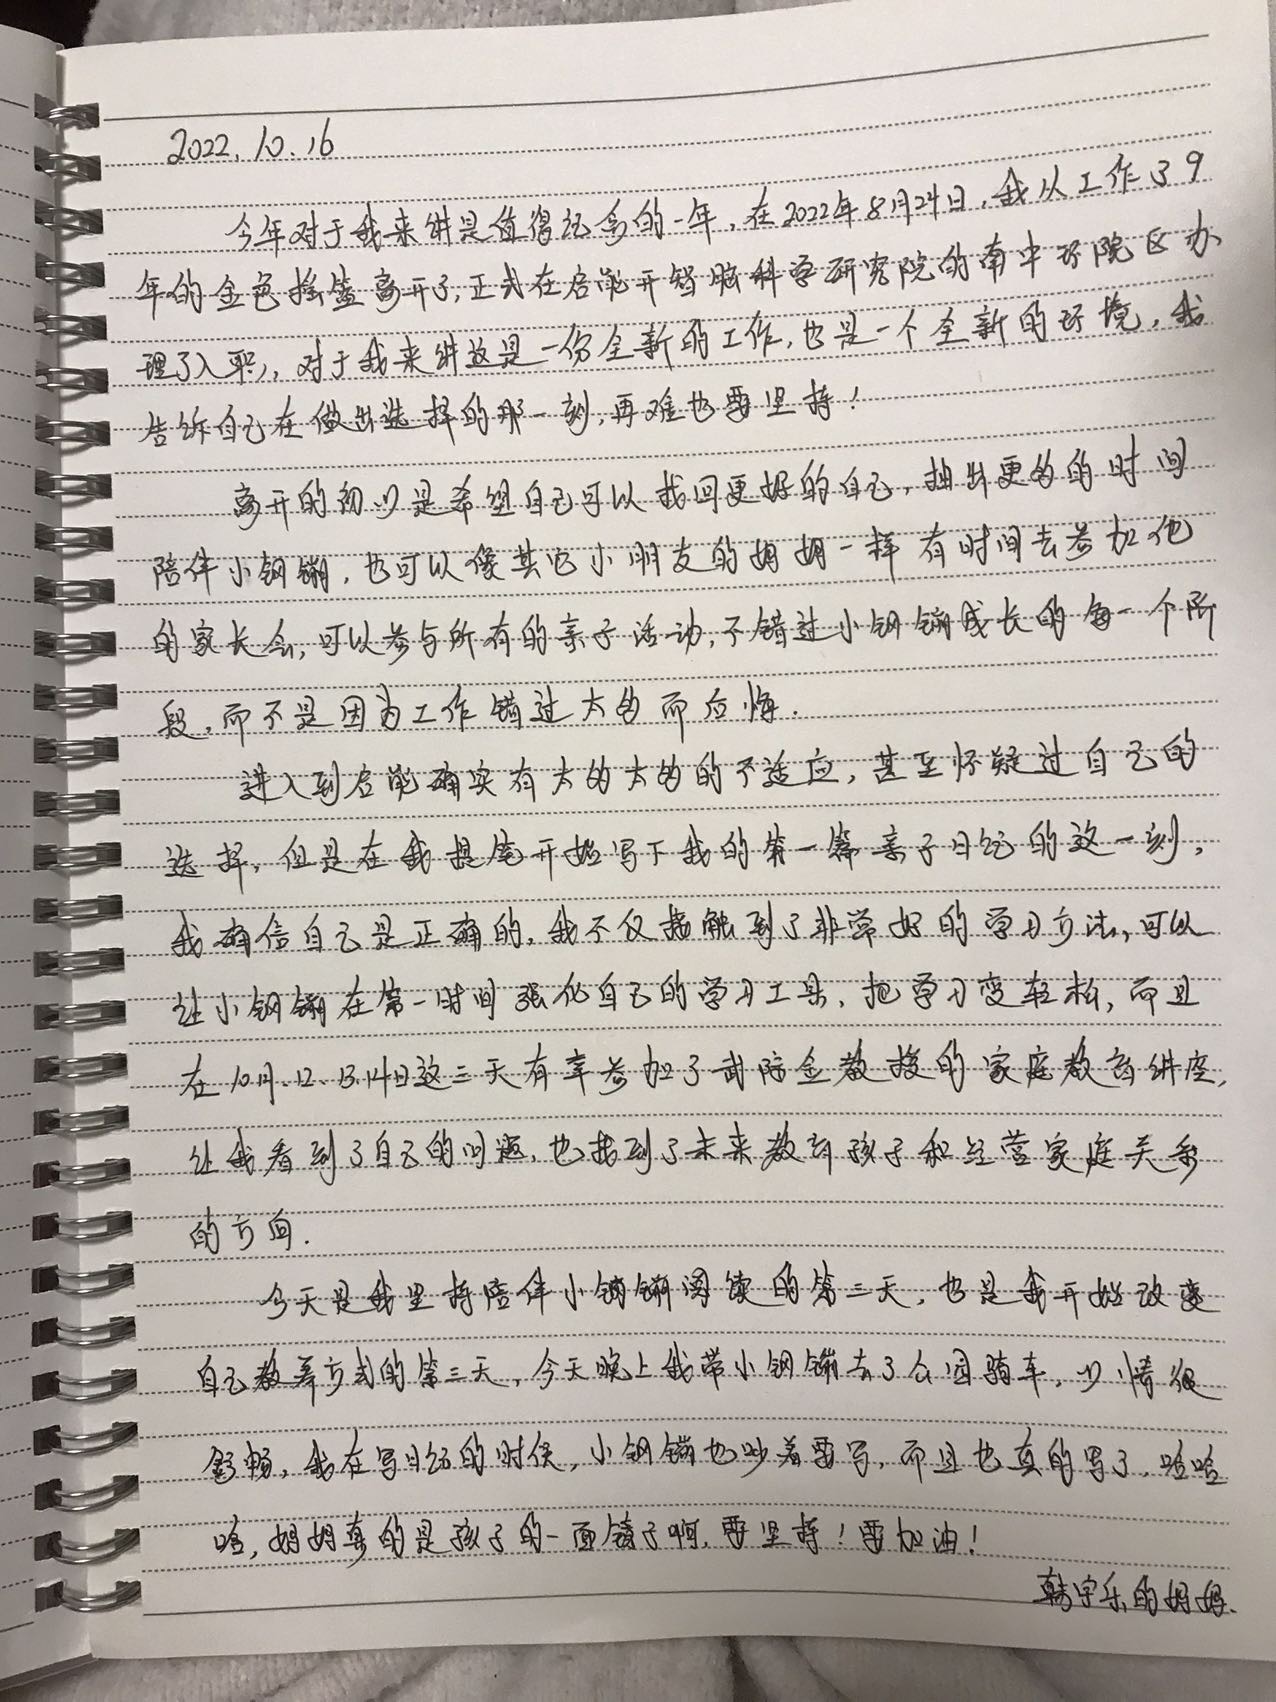 2022.10.16
今年对于我来讲是值得纪念的一年，在2022年8月24日，我从工作了9
年的金色摇篮离开了，正式在启能开智脑科学研究院的南中环院区办
理了入职，对于我来讲这是一份全新的工作，也是一个全新的环境，我
告诉自己在做出选择的那一刻，再难也要坚持！
离开的初心是希望自己可以找回更好的自己，抽出更多的时间
陪伴小钢镚，也可以像其它小朋友的妈妈一样有时间去参加他
的家长会，可以参与所有的亲子活动，不错过小钢镚成长的每一个阶
段，而不是因为工作错过太多而后悔．
进入到启能确实有太多太多的不适应，甚至怀疑过自己的
选择，但是在我提笔开始写下我的第一篇亲子日记的这一刻，
我确信自己是正确的，我不仅接触到了非常好的学习方法，可以
让小钢镚在第一时间强化自己的学习工具，把学习变轻松，而且
在10月.12.13.14日这三天有幸参加了武陪金教授的家庭教育讲座，
让我看到了自己的问题，也找到了未来教育孩子和经营家庭关系
的方向．
今天是我坚持陪伴小钢镚阅读的第三天，也是我开始改变
自己教养方式的第三天，今天晚上我带小钢镚去了公园骑车，心情很
舒畅，我在写日记的时候，小钢镚也吵着要写，而且也真的写了，哈哈
哈，妈妈真的是孩子的一面镜子啊，要坚持！要加油！
韩宇乐的妈妈．